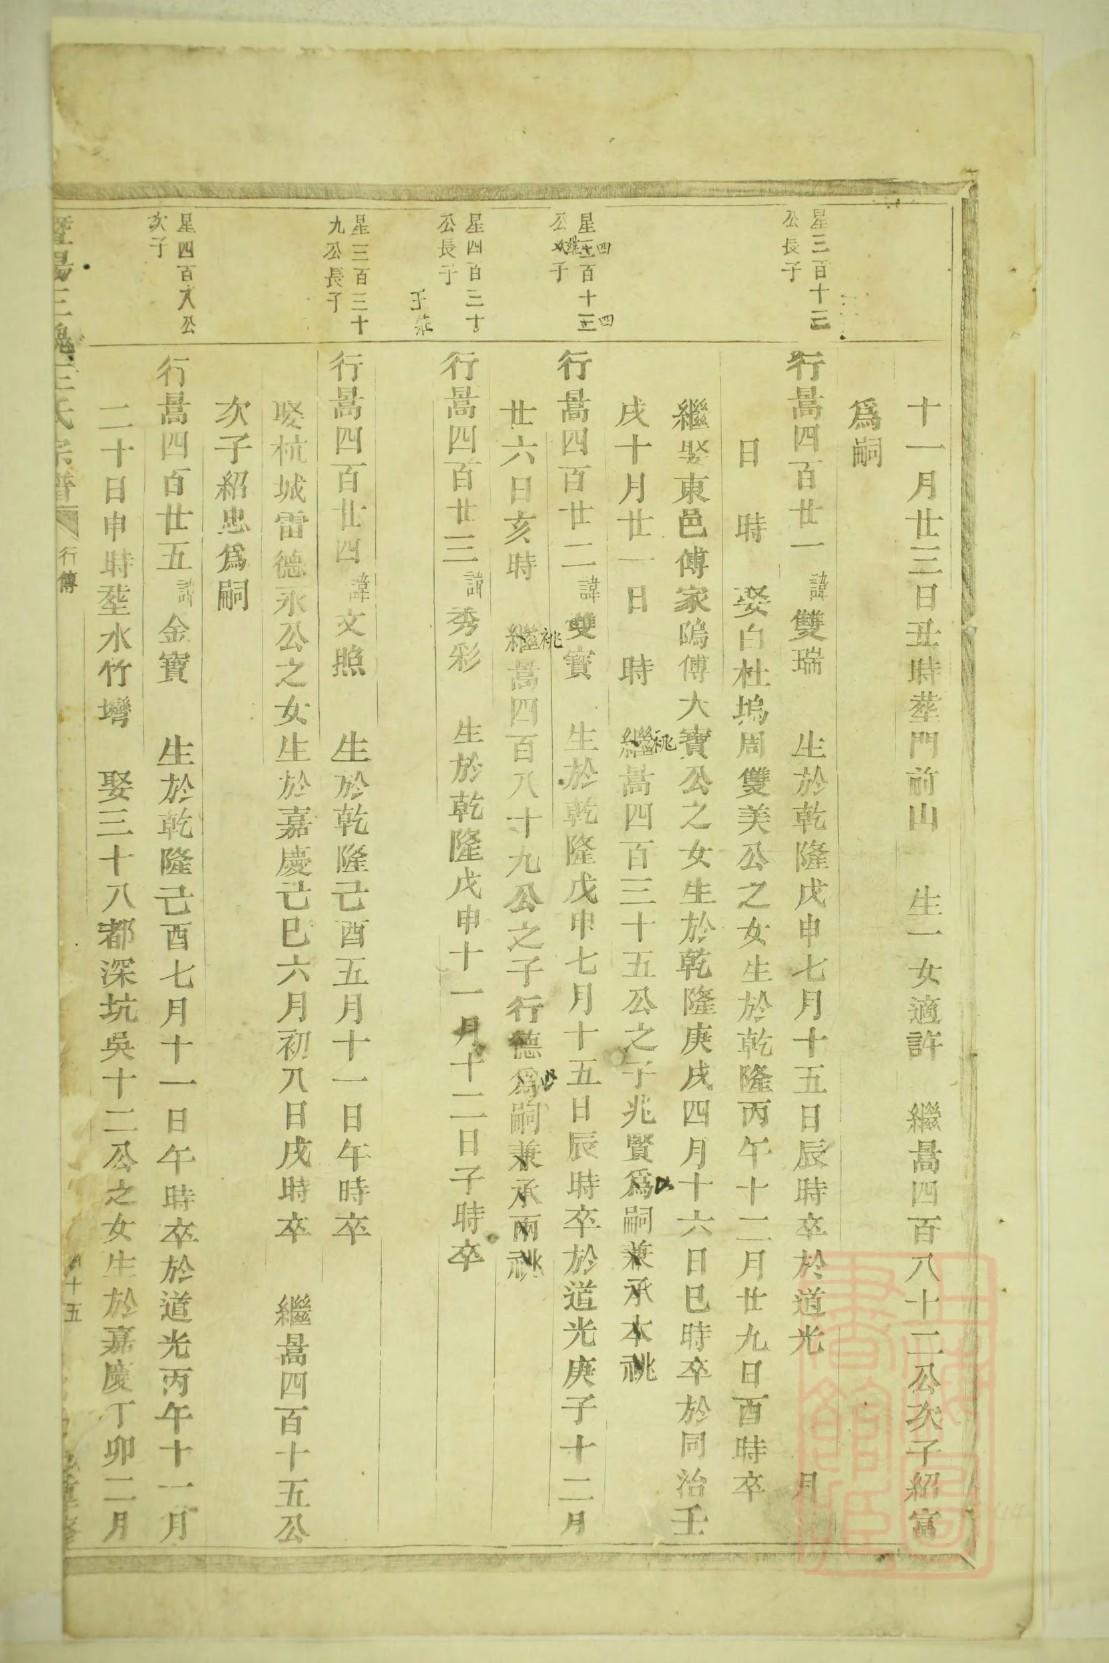 十一月廿三日丑時塟門前山 生一女適許 繼暠四百八十二公次子紹富
爲嗣
星三百十三
公長子
行暠四百廿一 諱 雙瑞 生於乾隆戊申七月十五日辰時卒於道光 月
日 時 娶白杜塢周雙美公之女生於乾隆丙午十二月廿九日酉時卒
繼娶東邑傅家隖傅大寶公之女生於乾隆庚戌四月十六日巳時卒於同治壬
戌十月廿一日 時 繼暠四百三十五公之子兆賢爲嗣兼承本祧
祧
以
星三百十三
四
四
公次子
行暠四百廿二 諱 雙寳 生於乾隆戊申七月十五日辰時卒於道光庚子十二月
廿六日亥時 繼暠四百八十九公之子行德爲嗣兼承兩祧
祧
以
星四百三十
公長子
行暠四百廿三 諱 秀彩 生於乾隆戊申十一月十二日子時卒
星三百三十
九公長子
行暠四百廿四 諱 文照 生於乾隆己酉五月十一日午時卒
娶杭城雷德永公之女生於嘉慶己巳六月初八日戌時卒 繼暠四百十五公
次子紹忠爲嗣
星四百八公
次子
行暠四百廿五 諱 金寶 生於乾隆己酉七月十一日午時卒於道光丙午十一月
二十日申時塟水竹灣 娶三十八都深坑吳十二公之女生於嘉慶丁卯二月
暨陽 王氏宗譜 行傳 十五